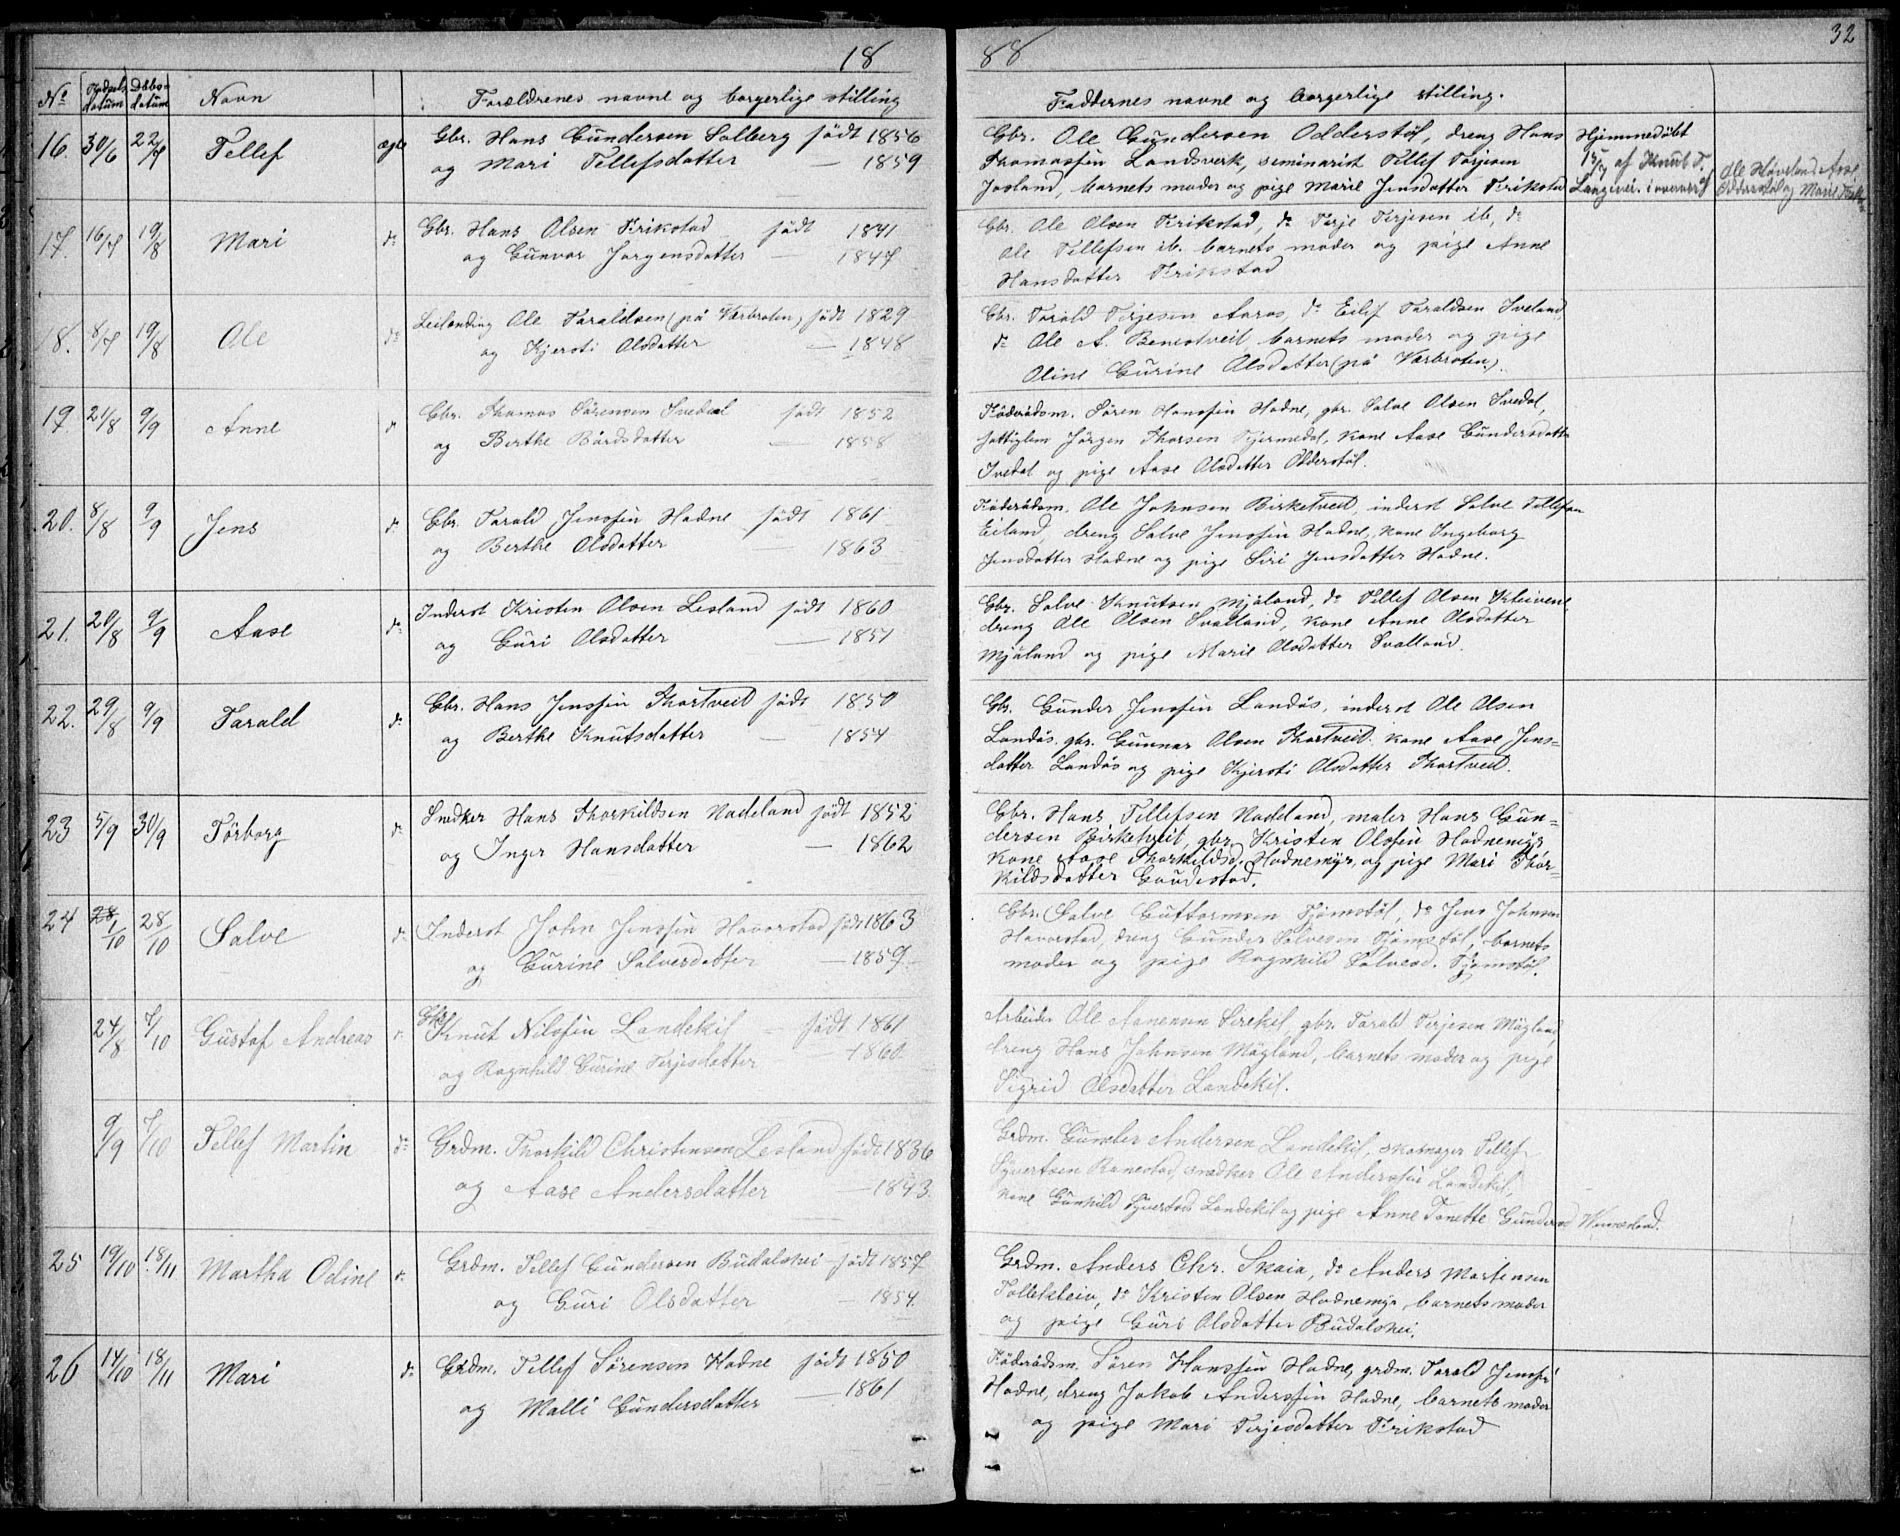 18 88 32
No Fødsels datum Daabs- datum Navn Forældrenes navne og borgerlige stilling Faddernes navne og borgerlige stilling.
16. 30/6 22/7 Tellef ægte Gbr. Hans Gundersen Solberg født 1856
og Mari Tellefsdatter — 1859
Gbr. Ole Gundersen Odderstøl, dreng Hans
Thomassen Landsverk, seminarist Tellef Terjesen
Josland, barnets moder og pige Marie Jensdatter Frikstad
Hjemmedøbt
15/7 af Knut T.
Langevei. i overvær af
Ole Høveland Aase
Odderstøl og Marie
17. 16/7 19/8 Mari do Gbr. Hans Olsen Frikstad født 1841
og Gunvor Jørgensdatter — 1847
Gbr. Ole Olsen Frikstad, do Terje Terjesen ib, do
Ole Tellefsen ib. barnets moder og pige Anne
Hansdatter Frikstad
18. 8/7 19/8 Ole do Leilending Ole Taraldsen (på Værbroten) født 1829
og Kjersti Olsdatter — 1848
Gbr. Tarald Terjesen Aaros, do Eilef Taraldsen Iveland
do Ole A. Benestveit, barnets moder og pige
Oline Gurine Olsdatter (på Værbroten).
19. 21/8 9/9 Anne do Gbr. Thomas Sørensen Ivedal født 1852
og Berthe Bårdsdatter — 1858
Føderådsm. Søren Hanssen Hodne, gbr. Salve Olsen Ivedal,
fattiglem Jørgen Thorsen Tjermedal, kone Aase Gundersdatter
Ivedal og pige Aase Olsdatter Odderstøl.
20. 8/8 9/9 Jens do Gbr. Tarald Jenssen Hodne født 1861
og Berthe Olsdatter — 1863
Føderådsm. Ole Johnsen Birketveit, inderst Salve Tellefsen
Eiland, dreng Salve Jenssen Hodne, kone Ingeborg
Jensdatter Hodne og pige Siri Jensdatter Hodne.
21. 20/8 9/9 Aase do Inderst Kristen Olsen Lesland født 1860
og Guri Olsdatter — 1851
Gbr. Salve Knutsen Mjåland, do Tellef Olsen Kleivene,
dreng Ole Olsen Svalland, kone Anne Olsdatter
Mjåland og pige Marie Olsdatter Svalland.
22. 29/8 9/9 Tarald do Gbr. Hans Jenssen Thortveit født 1850
og Berthe Knutsdatter — 1854
Gbr. Gunder Jenssen Landås, inderst Ole Olsen
Landås. gbr. Gunnar Olsen Thortveit. kone Aase Jens-
datter Landås og pige Kjersti Olsdatter Thortveit.
23 5/9 30/9 Tørborg do Snedker Hans Thorkildsen Nadeland født 1852
og Inger Hansdatter — 1862
Gbr. Hans Tellefsen Nadeland, maler Hans Gun-
dersen Birketveit, gbr. Kristen Olssen Hodnemyr
kone Aase Thorkildsd. Hodnemyr, og pige Mari Thor-
kildsdatter Gaudestad.
24 28/10 Salve do Inderst John Jenssen Havorstad født 1863
og Gurine Salvesdatter — 1859
Gbr. Salve Guttormsen Tjomstøl, do Jens Johnsen
Havorstad, dreng Gunder Salvesen Tjomstøl, barnets
moder og pige Ragnhild Salvesd. Tjomstøl.
24/8 7/10 Gustaf Andreas do Gbr. Knut Nilssen Landekil født 1861
og Ragnhild Gurine Terjesdatter — 1860
Arbeider Ole Aanensen Sirekil, gbr. Tarald Terjesen Mogland,
dreng Hans Johnsen Mogland, barnets moder og pige
Sigrid Olsdatter Landekil.
9/9 7/10 Tellef Martin do Grdm. Thorkild Christensen Lesland født 1836
og Aase Andersdatter — 1843.
Grdm. Gunder Andersen Landekil, skomager Tellef
Syvertsen Ranestad, snedker Ole Anderssen Landekil,
kone Gunhild Syvertsd. Landekil og pige Anne Tonette Gundersd
25 19/10 18/11 Martha Odine do Grdm. Tellef Gundersen Budalshei født 1857
og Guri Olsdatter — 1854.
Grdm. Anders Chr. Skaia, do Anders Mortensen
Tolleklev, do Kristen Olsen Hodnemyr, barnets moder
og pige Guri Olsdatter Budalshei.
26 14/10 18/11 Mari do Grdm. Tellef Sørensen Hodne født 1850
og Malli Gundersdatter — 1861
Føderådsm. Søren Hanssen Hodne, grdm. Tarald Jenssen
Hodne, dreng Jakob Anderssen Hodne, barnets moder
og pige Mari Terjesdatter Frikstad